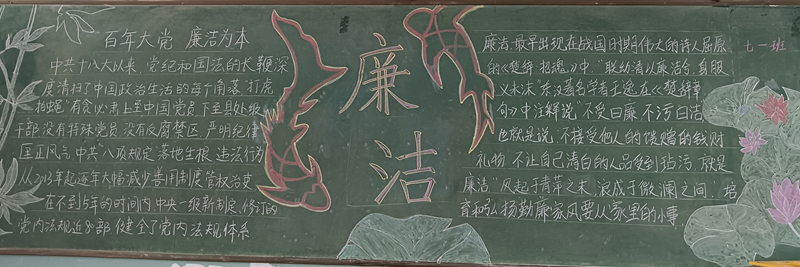 百年大党 廉洁为本
中共十八大以来,党纪和国法的长鞭深
度清扫了中国政治生活的每个角落,打虎
拍蝇"有贪必肃上至中国党员下至县处级
干部没有特殊党员没有反腐禁区,严明纪律
国正风气 中共"八项规定"落地生根 违法行为
从2013年起逐年大幅减少善用制度管权治吏
在不到5年的时间内中央一级新制定、修订的
党内法规近80部 健全了党内法规体系
廉
洁
廉洁,最早出现在战国时期伟大的诗人屈原
的《楚辞·招魂》中"朕幼清以廉洁兮,身服
义未沫"东汉著名学者王逸在《楚辞章
句》中注释说"不受曰廉 不污曰洁
也就是说,不接受他人的馈赠的钱财
礼物 不让自己清白的人品受到玷污,就是
廉洁"风起于青萍之末 浪成于微澜之间 培
育和弘扬勤廉家风要从家里的小事
七一班